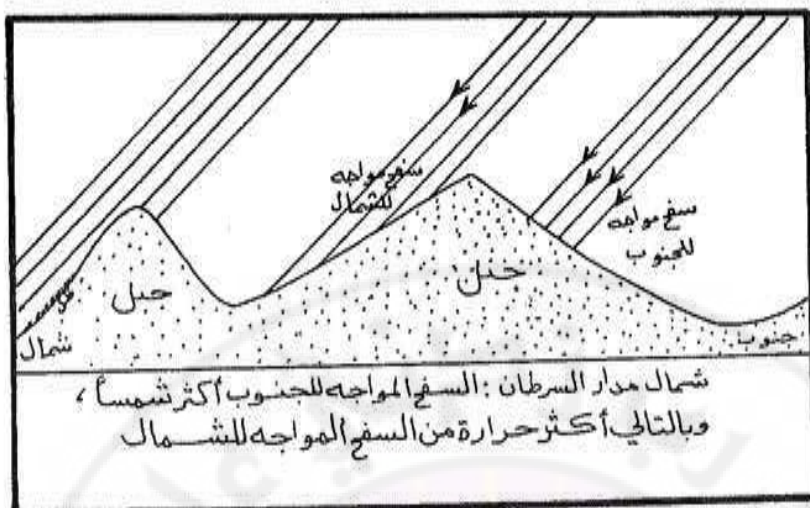 سفح مواجه
للشمال
سفح مواجه
للجنوب
جبل
جبل
شمال
جنوب
شمال مدار السرطان : السفح المواجه للجنوب أكثر شمساً ،
وبالتالي أكثر حرارة من السفح المواجه للشمال